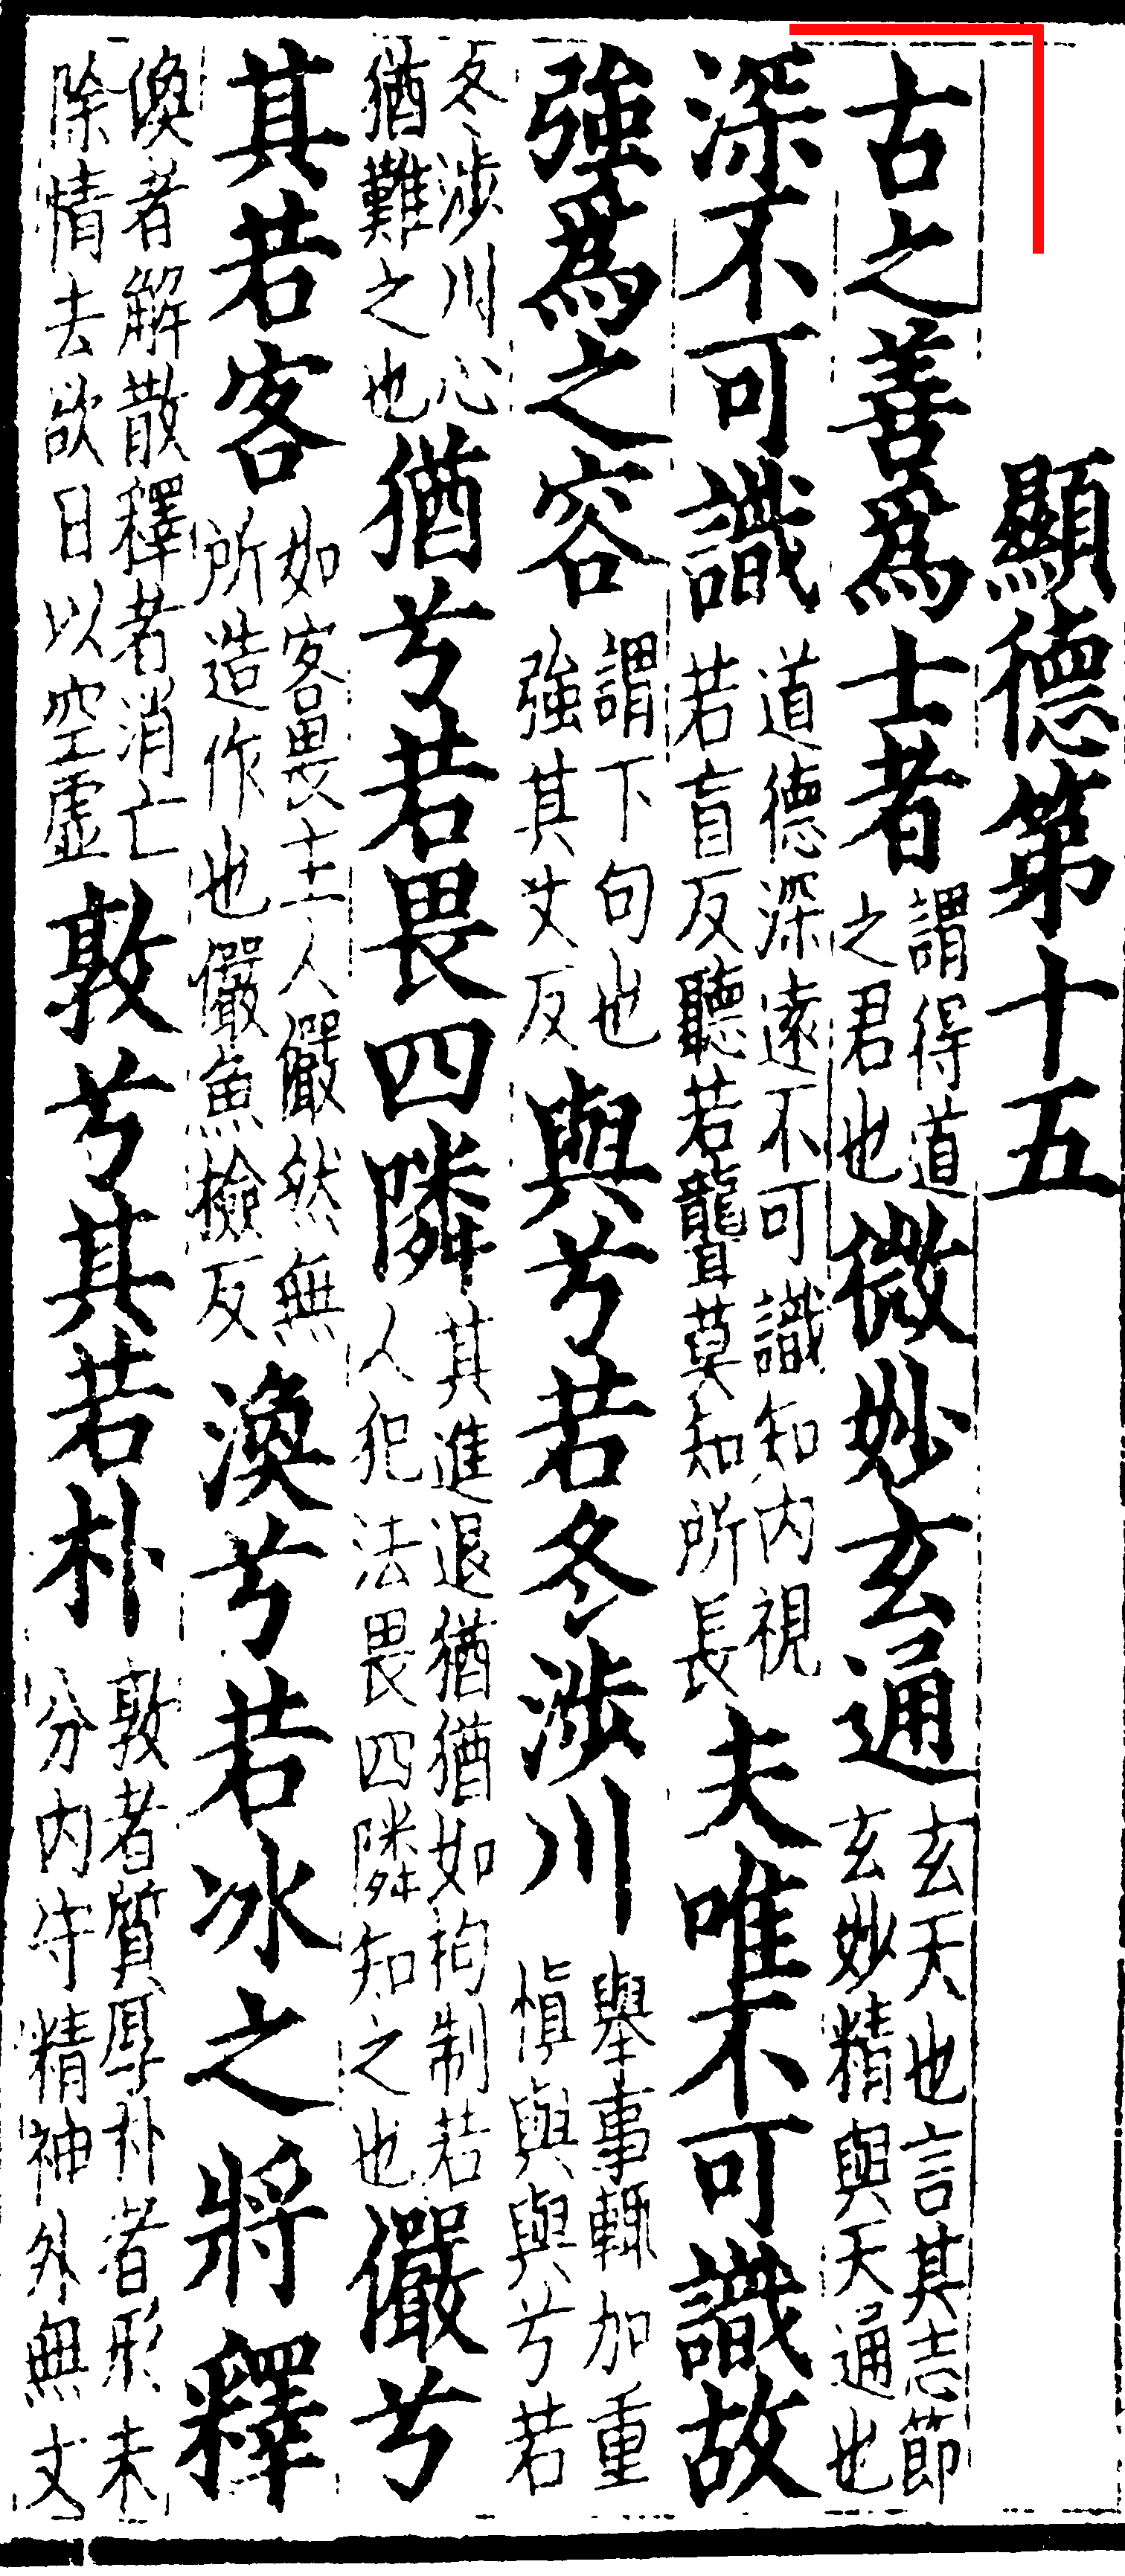 顯德第十五
古之善爲士者謂得道之君也微妙玄通玄天也言其志節玄妙精與天通也
深不可識道德深遠不可識知內視若盲反聽若聾莫知所長夫唯不可識故
強爲之容謂下句也強其丈反與兮若冬涉川舉事輒加重愼與與兮若
冬涉川心猶難之也猶兮若畏四隣其進退猶猶如拘制若人犯法畏四隣知之也儼兮
其若客如客畏主人儼然無所造作也儼魚檢反渙兮若冰之將釋
渙者解散釋者消亡除情去欲日以空虛敦兮其若朴敦者質厚朴者形未分內守精神外無文